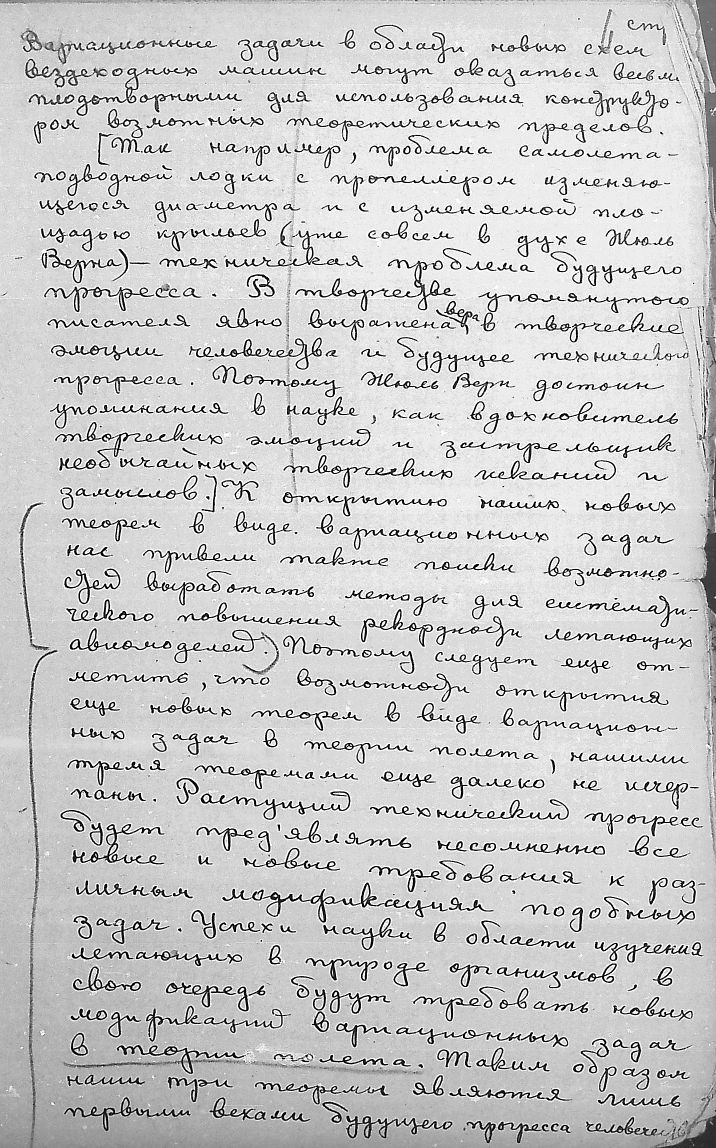 стр
Вариационные задачи в области новых схем
вездеходных машин могут оказаться весьма
плодотворными для использования конструкто-
ром возможных теоретических пределов.
[Так например, проблема самолета-
подводной лодки с пропеллером изменяю-
щегося диаметра и с изменяемой пло-
щадью крыльев (уже совсем в духе Жюль
Верна) — техническая проблема будущего
прогресса. В творчестве упомянутого
писателя явно выражена вера в творческие
эмоции человечества и будущее технического
прогресса. Поэтому Жюль Верн достоин
упоминания в науке, как вдохновитель
творческих эмоций и застрельщик
необычайных творческих исканий и
замыслов.] К открытию наших новых
теорем в виде вариационных задач
нас привели также поиски возможно-
стей выработать методы для системати-
ческого повышения рекордности летающих
авиамоделей.) Поэтому следует еще от-
метить, что возможности открытия
еще новых теорем в виде вариацион-
ных задач в теории полета, нашими
тремя теоремами еще далеко не исчер-
паны. Растущий технический прогресс
будет пред'являть несомненно все
новые и новые требования к раз-
личным модификациям подобных
задач. Успехи науки в области изучения
летающих в природе организмов, в
свою очередь будут требовать новых
модификаций вариационных задач
в теории полета. Таким образом
наши три теоремы являются лишь
первыми вехами будущего прогресса человечества